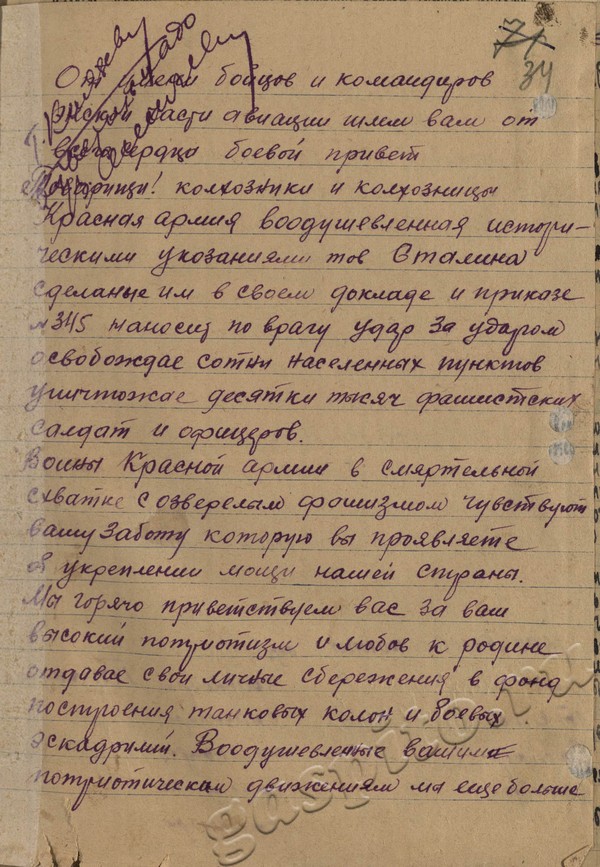 71
34
От имени бойцов и командиров
части авиации шлем вам от
всего сердца боевой привет
Товарищи! колхозники и колхозницы
Красная армия воодушевленная истори-
ческими указаниями тов Сталина
сделаные им в своем докладе и приказе
№345 наносит по врагу удар за ударом
освобождае сотни населенных пунктов
уничтожае десятки тысяч фашистских
салдат и офицеров.
Воины Красной армии в смертельной
схватке с озверелым фашизмом чувствуют
вашу заботу которую вы проявляете
об укреплении мощи нашей страны.
Мы горячо приветствуем вас за ваш
высокий потриотизм и любов к родине
отдавае свои личные сбережения в фонд
построения танковых колон и боевых
эскадрилий. Воодушевленые вашим
потриотическим движением мы еще больше
gaspito.ru